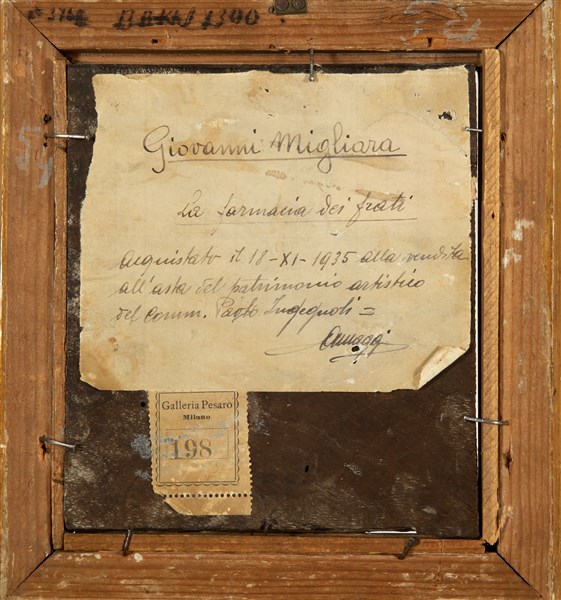 Giovanni Migliara
La farmacia dei frati
acquistato il 18-XI-1935 alla vendita
all'asta del patrimonio artistico
del comm. Paolo Ingegnoli =
Galleria Pesaro
Milano
198